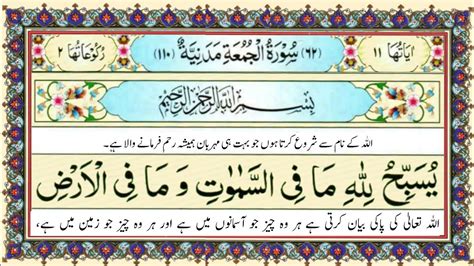 اٰيَاتُهَا ١١ (٦٢) سُوْرَةُ الْجُمُعَةِ مَدَنِيَّةٌ (١١٠) رُكُوْعَاتُهَا ٢
بِسْمِ اللهِ الرَّحْمٰنِ الرَّحِيْمِ
اللہ کے نام سے شروع کرتا ہوں جو بہت ہی مہربان ہمیشہ رحم فرمانے والا ہے۔
يُسَبِّحُ لِلّٰهِ مَا فِى السَّمٰوٰتِ وَ مَا فِى الْاَرْضِ
اللہ تعالٰی کی پاکی بیان کرتی ہے ہر وہ چیز جو آسمانوں میں ہے اور ہر وہ چیز جو زمین میں ہے،